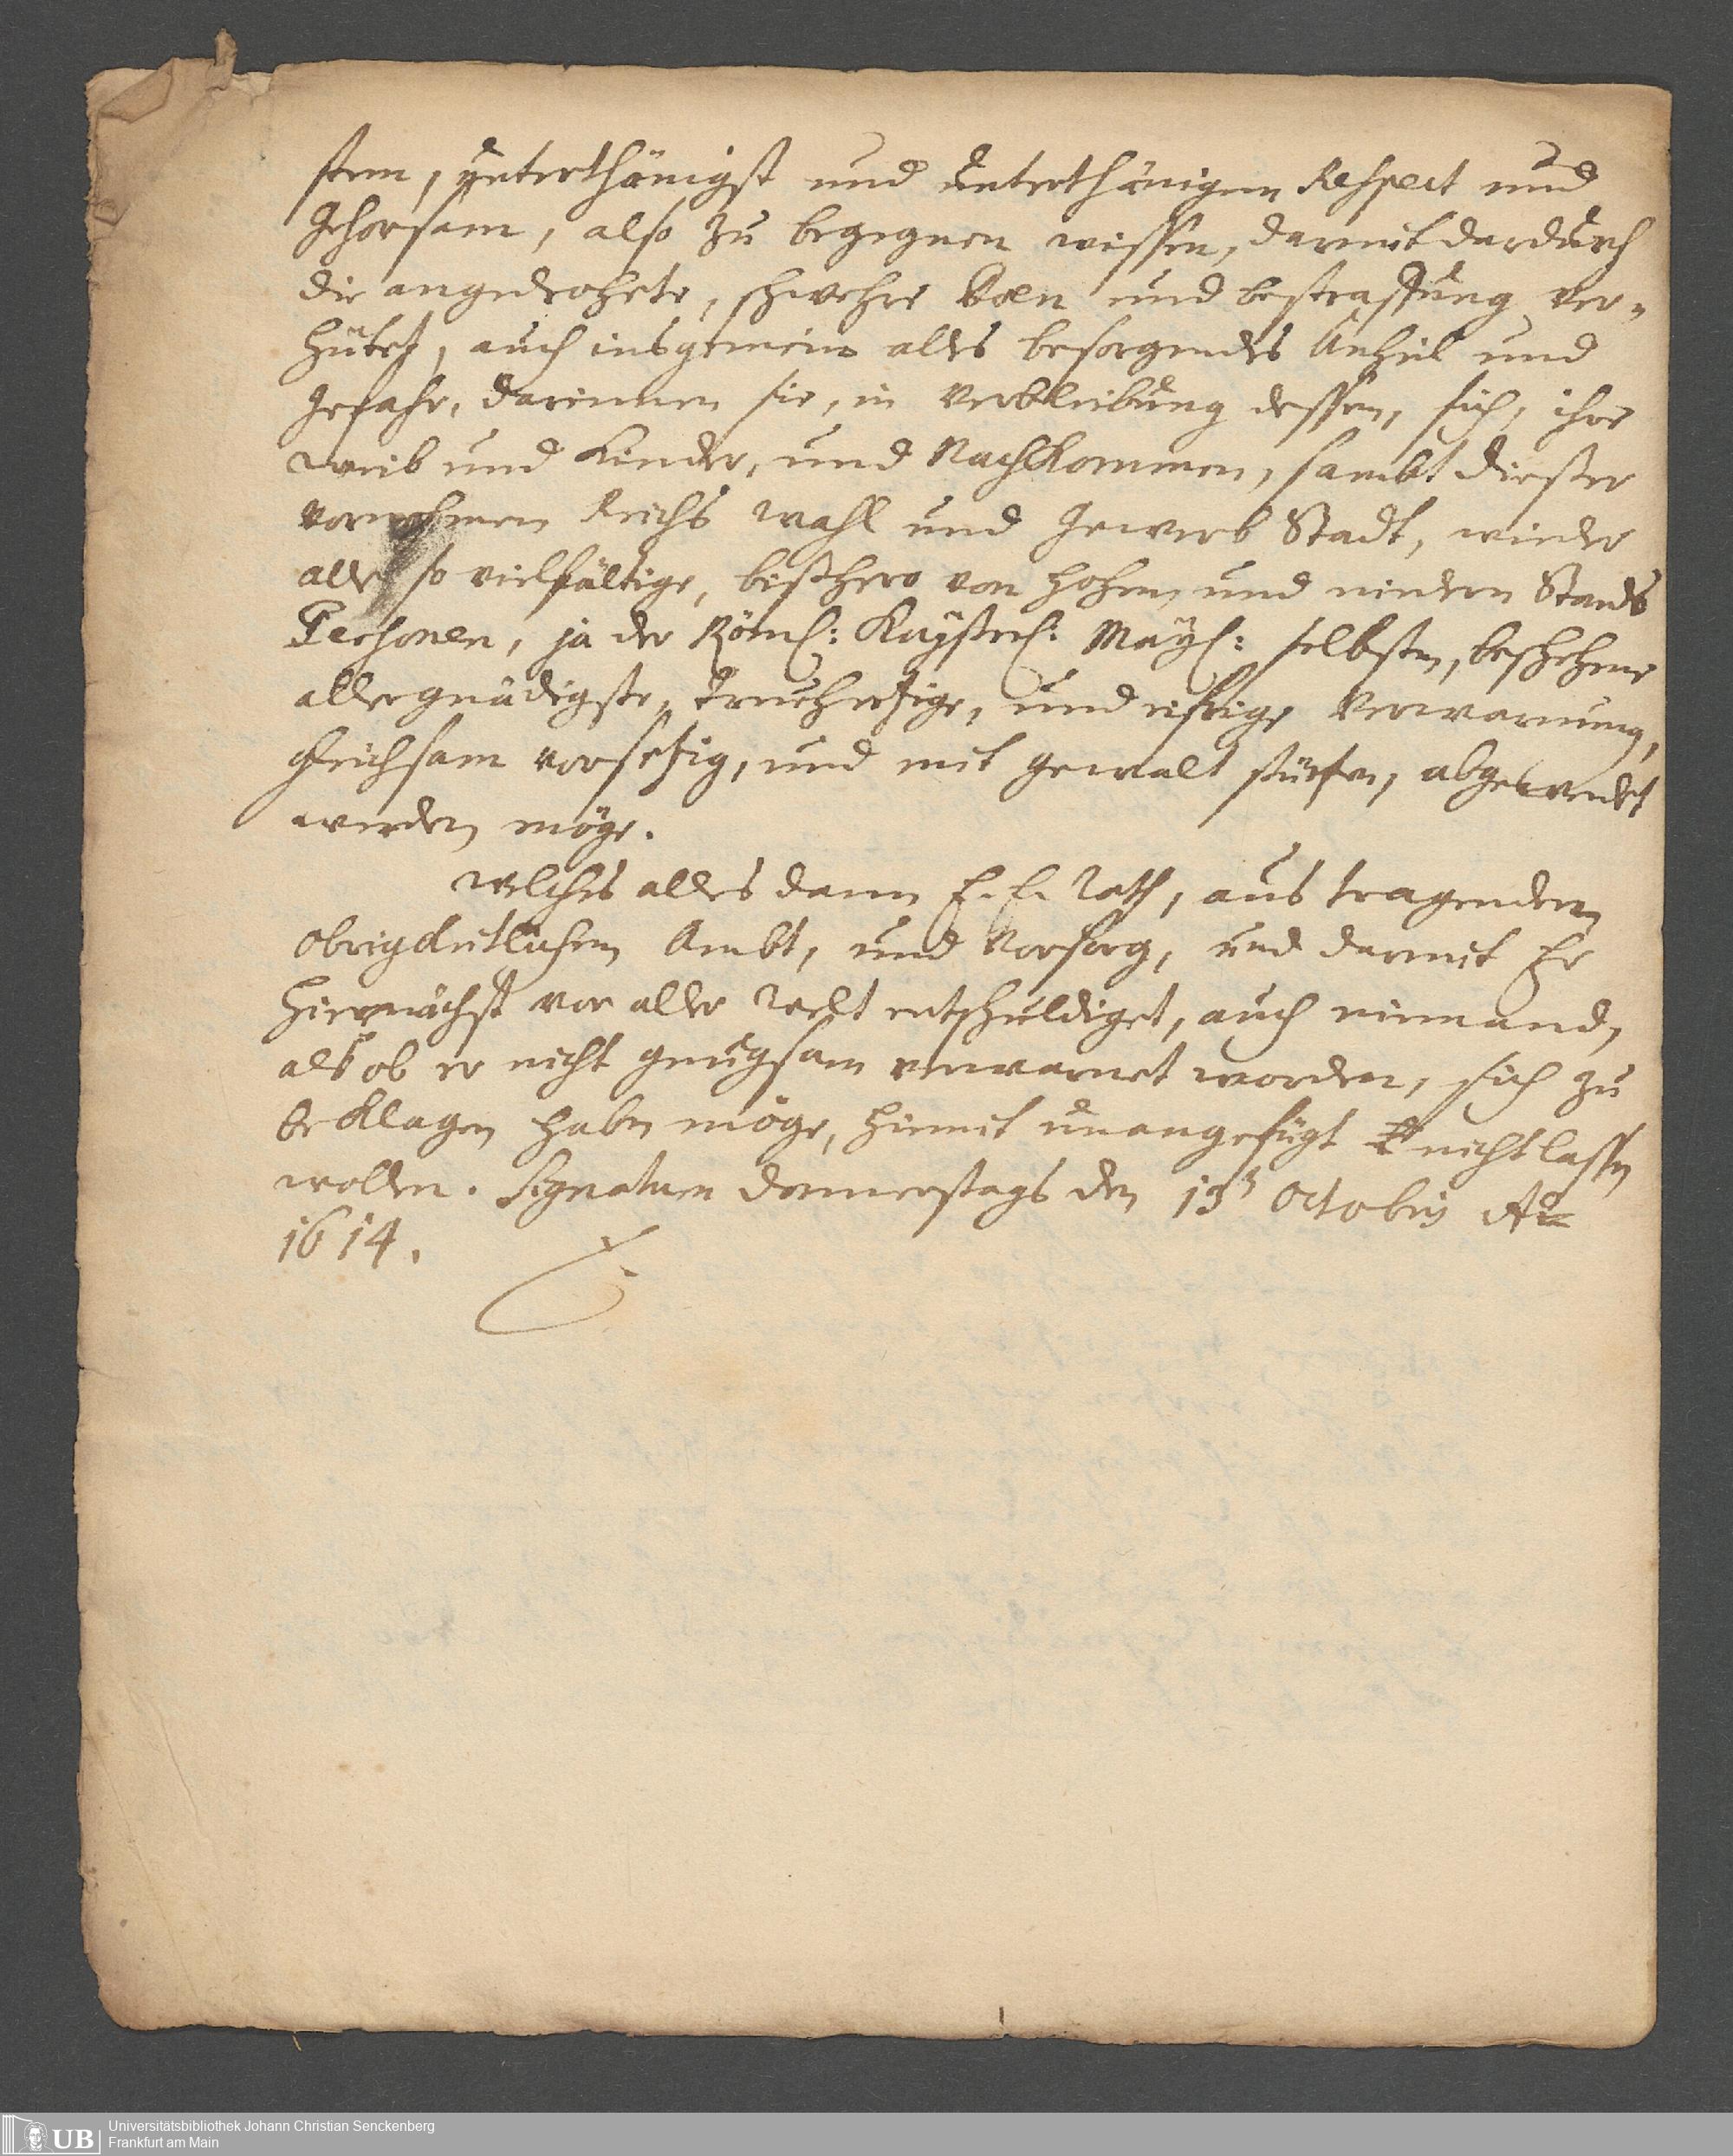 stem, unterthänigst und unterthänigem Respect und
Gehorsam, also zu begegnen wissen, darmit dardurch
die angedrohete, schwehre Poen und bestraffung ver-
hütet, auch insgemein alles besorgendes Unheil und
Gefahr, darinnen sie, in Verbleibung dessen, sich, ihre
Weib und Kinder, und Nachkommen, sambt dieser
vornehmen Reichs Wahl und Gewerb Stadt, wieder
alle so vielfältige, bißhero von hohen und niedern Stands
Personen, ja der Röml: Kaysserl: Mayl: selbsten, beschehene
allergnädigste, treuhertzige, und eifrige Verwarnung,
gleichsam vorsetzig, und mit gewalt stürtzen, abgewendet
werden möge.
Welches alles dann E. E. Rath, aus tragendem
Obrigkeitlichem Ambt, und Vorsorg, und darmit Er
hiernächst vor aller Welt entschuldiget, auch niemand,
als ob er nicht gnugsam verwarnet worden, sich zu
beklagen haben möge, hiemit unangefügt nicht lassen
wollen. Signatum Donnerstags den 13t Octobris Ao
1614.
UB
Universitätsbibliothek Johann Christian Senckenberg
Frankfurt am Main